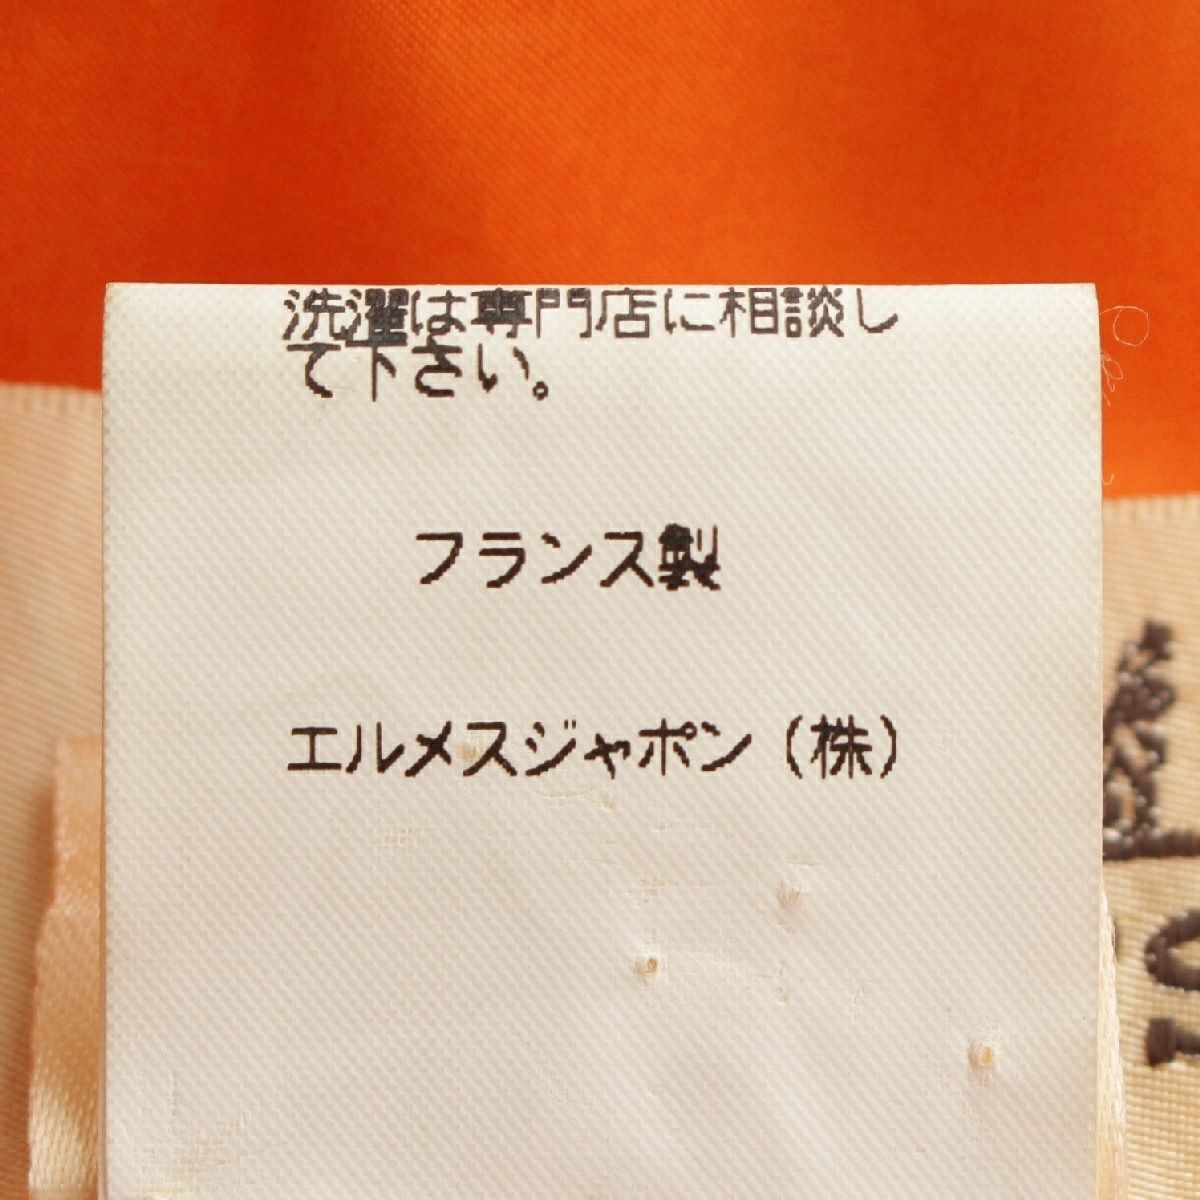 洗濯は専門店に相談し
て下さい。
フランス製
エルメスジャポン（株）